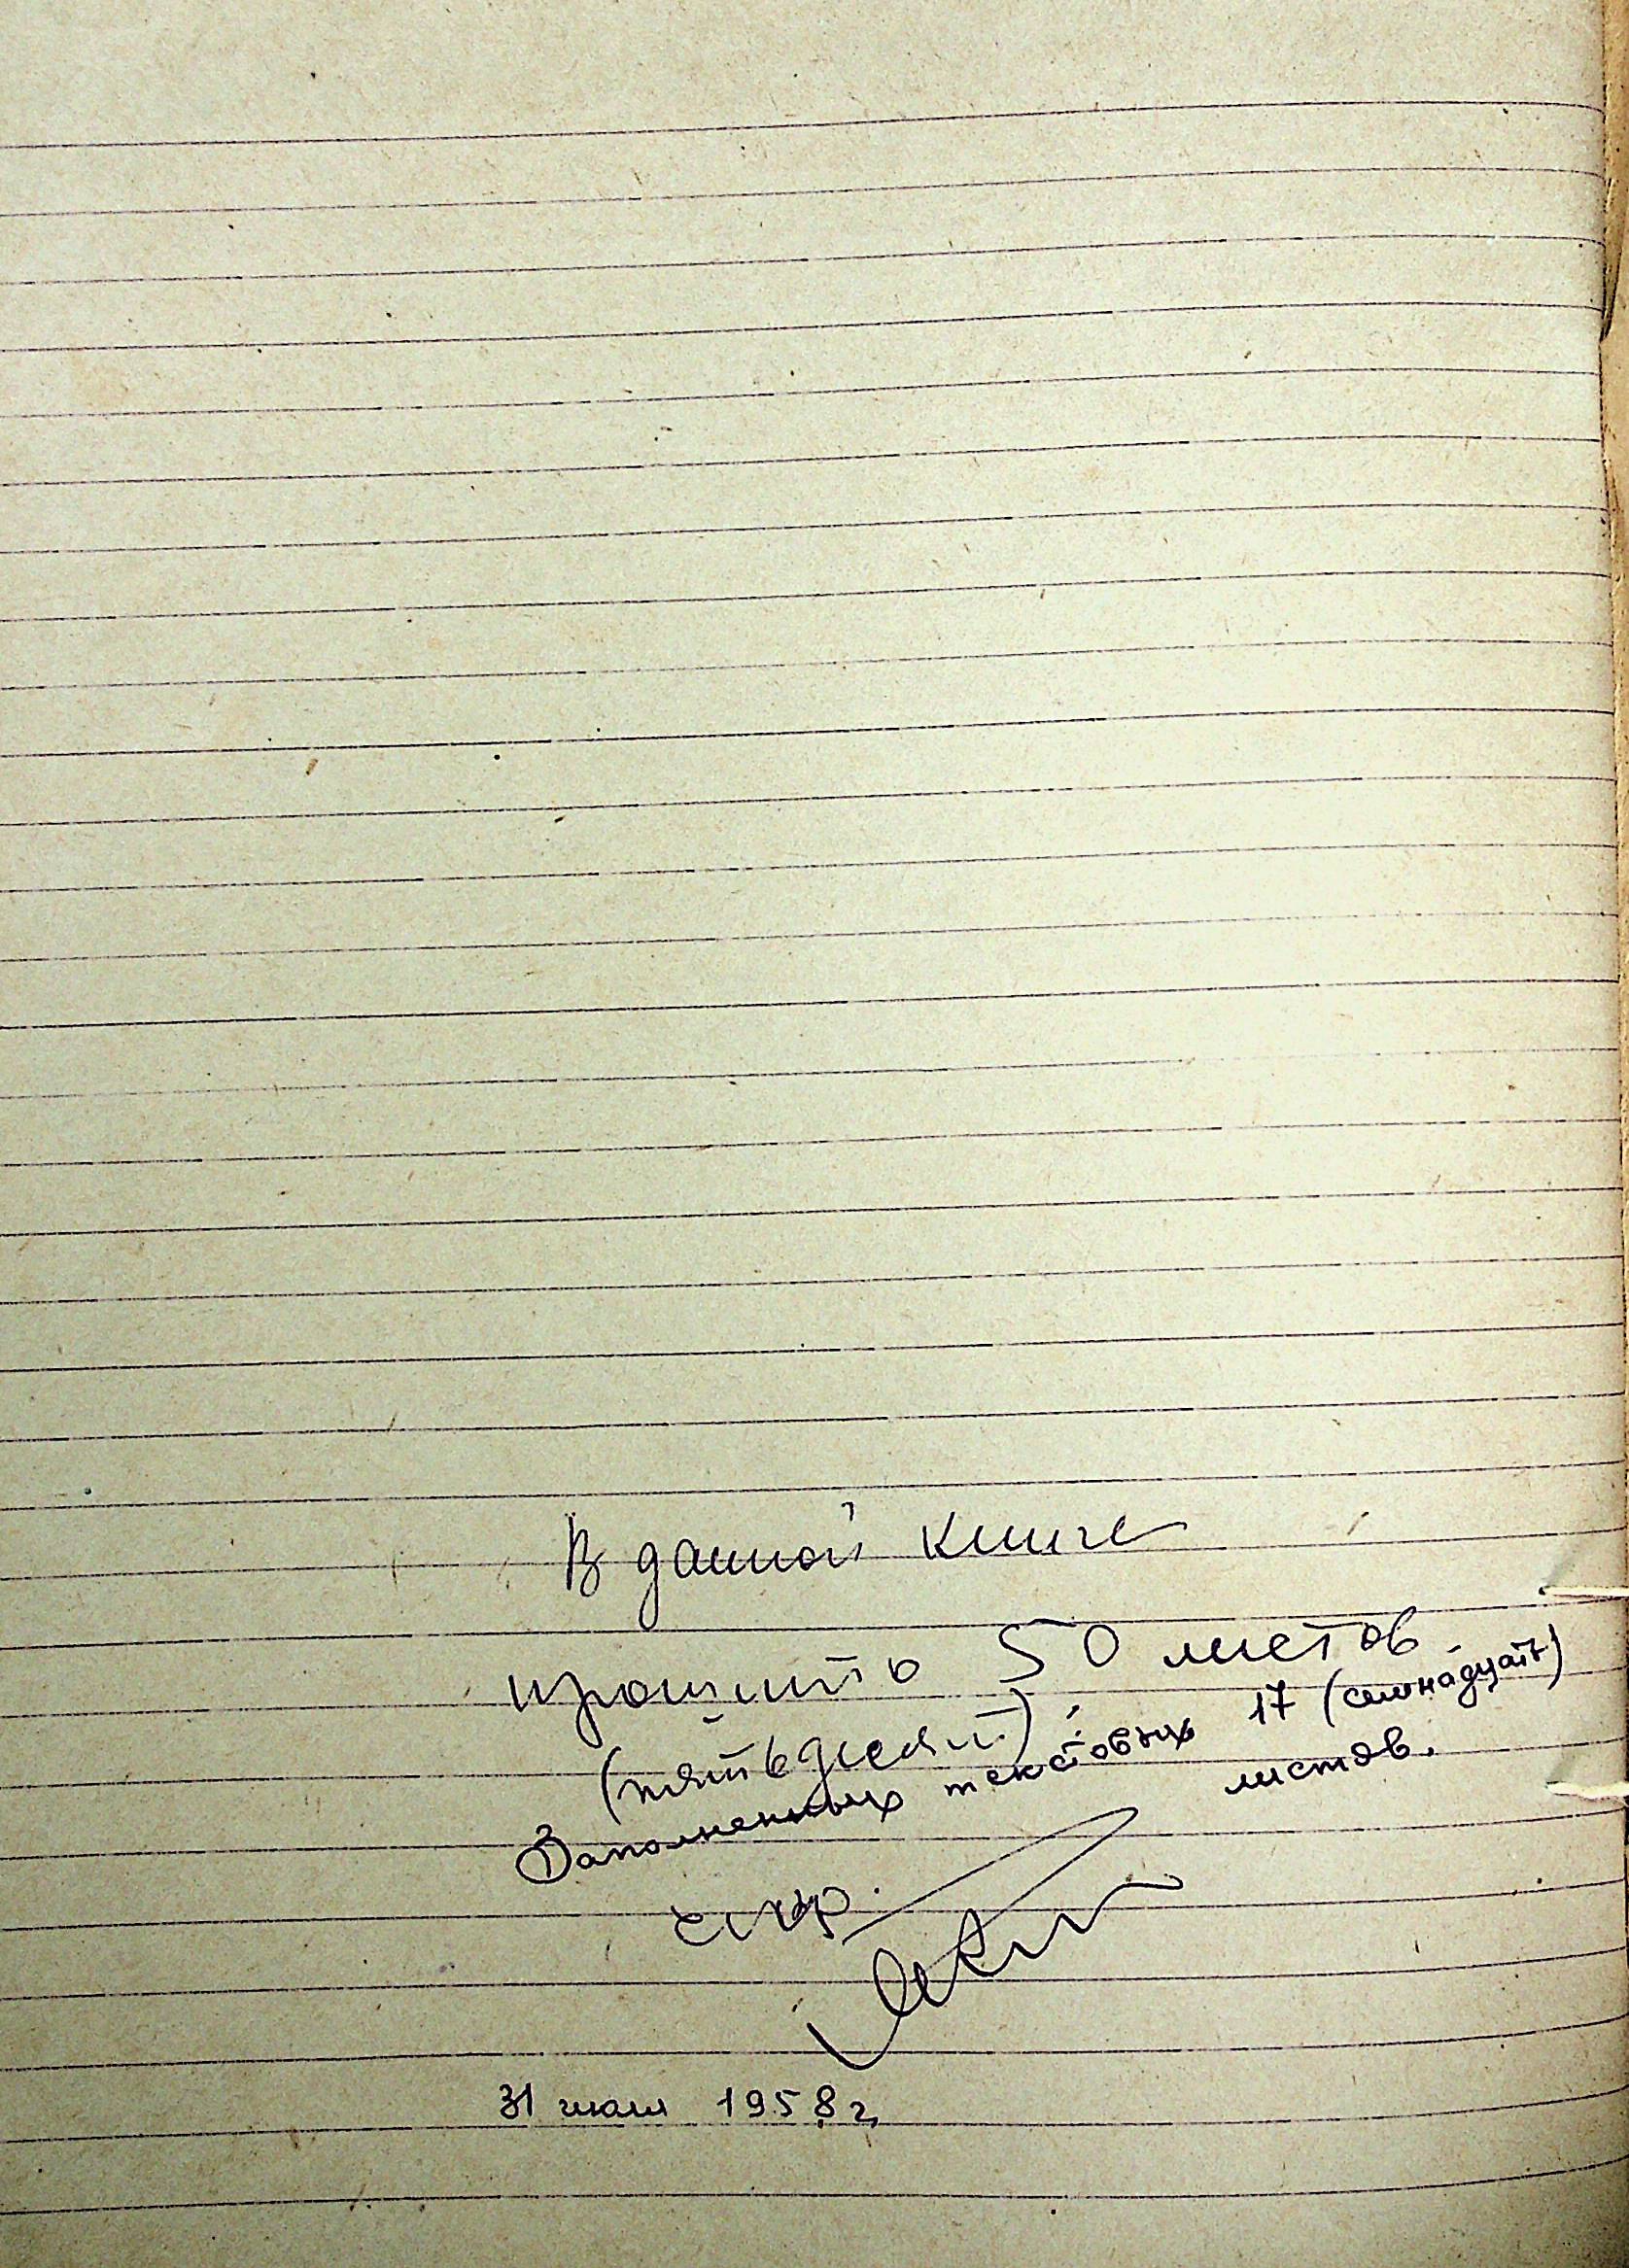 В данной книге
прошито 50 листов
(пятьдесят).
Заполненных текстовых 17 (семнадцать)
листов.
31 июля 1958 г.